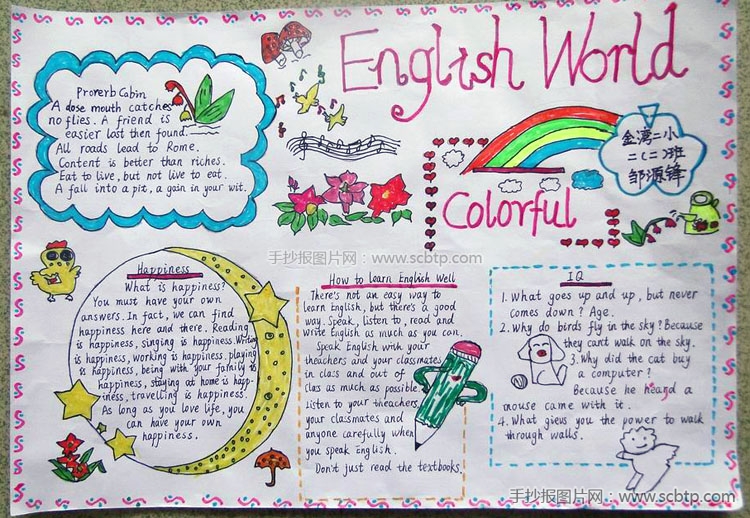 English World
金湾二小
二(二)班
邹源锋
Colorful
Proverb Cabin
A dose mouth catches
no flies. A friend is
easier lost then found.
All roads lead to Rome.
Content is better than riches.
Eat to live, but not live to eat.
A fall into a pit, a gain in your wit.
手抄报图片网：www.scbtp.com
Happiness
What is happiness?
You must have your own
answers. In fact, we can find
happiness here and there. Reading
is happiness, singing is happiness. Writing
is happiness, working is happiness, playing
is happiness, being with your family is
happiness, staying at home is happ-
iness, travelling is happiness.
As long as you love life, you
can have your own
happiness.
How to learn English Well
There's not an easy way to
learn English, but there's a good
way. Speak, listen to, read and
write English as much as you can.
Speak English with your
theachers and your classmates
in class and out of
clas as much as possible.
Listen to your theachers,
your classmates and
anyone carefully when
you speak English.
Don't just read the textbooks.
IQ
1. What goes up and up, but never
comes down? Age.
2. Why do birds fly in the sky? Because
they can't walk on the sky.
3. Why did the cat buy
a computer?
Because he heard a
mouse came with it.
4. What gievs you the power to walk
through walls.
手抄报图片网：www.scbtp.com